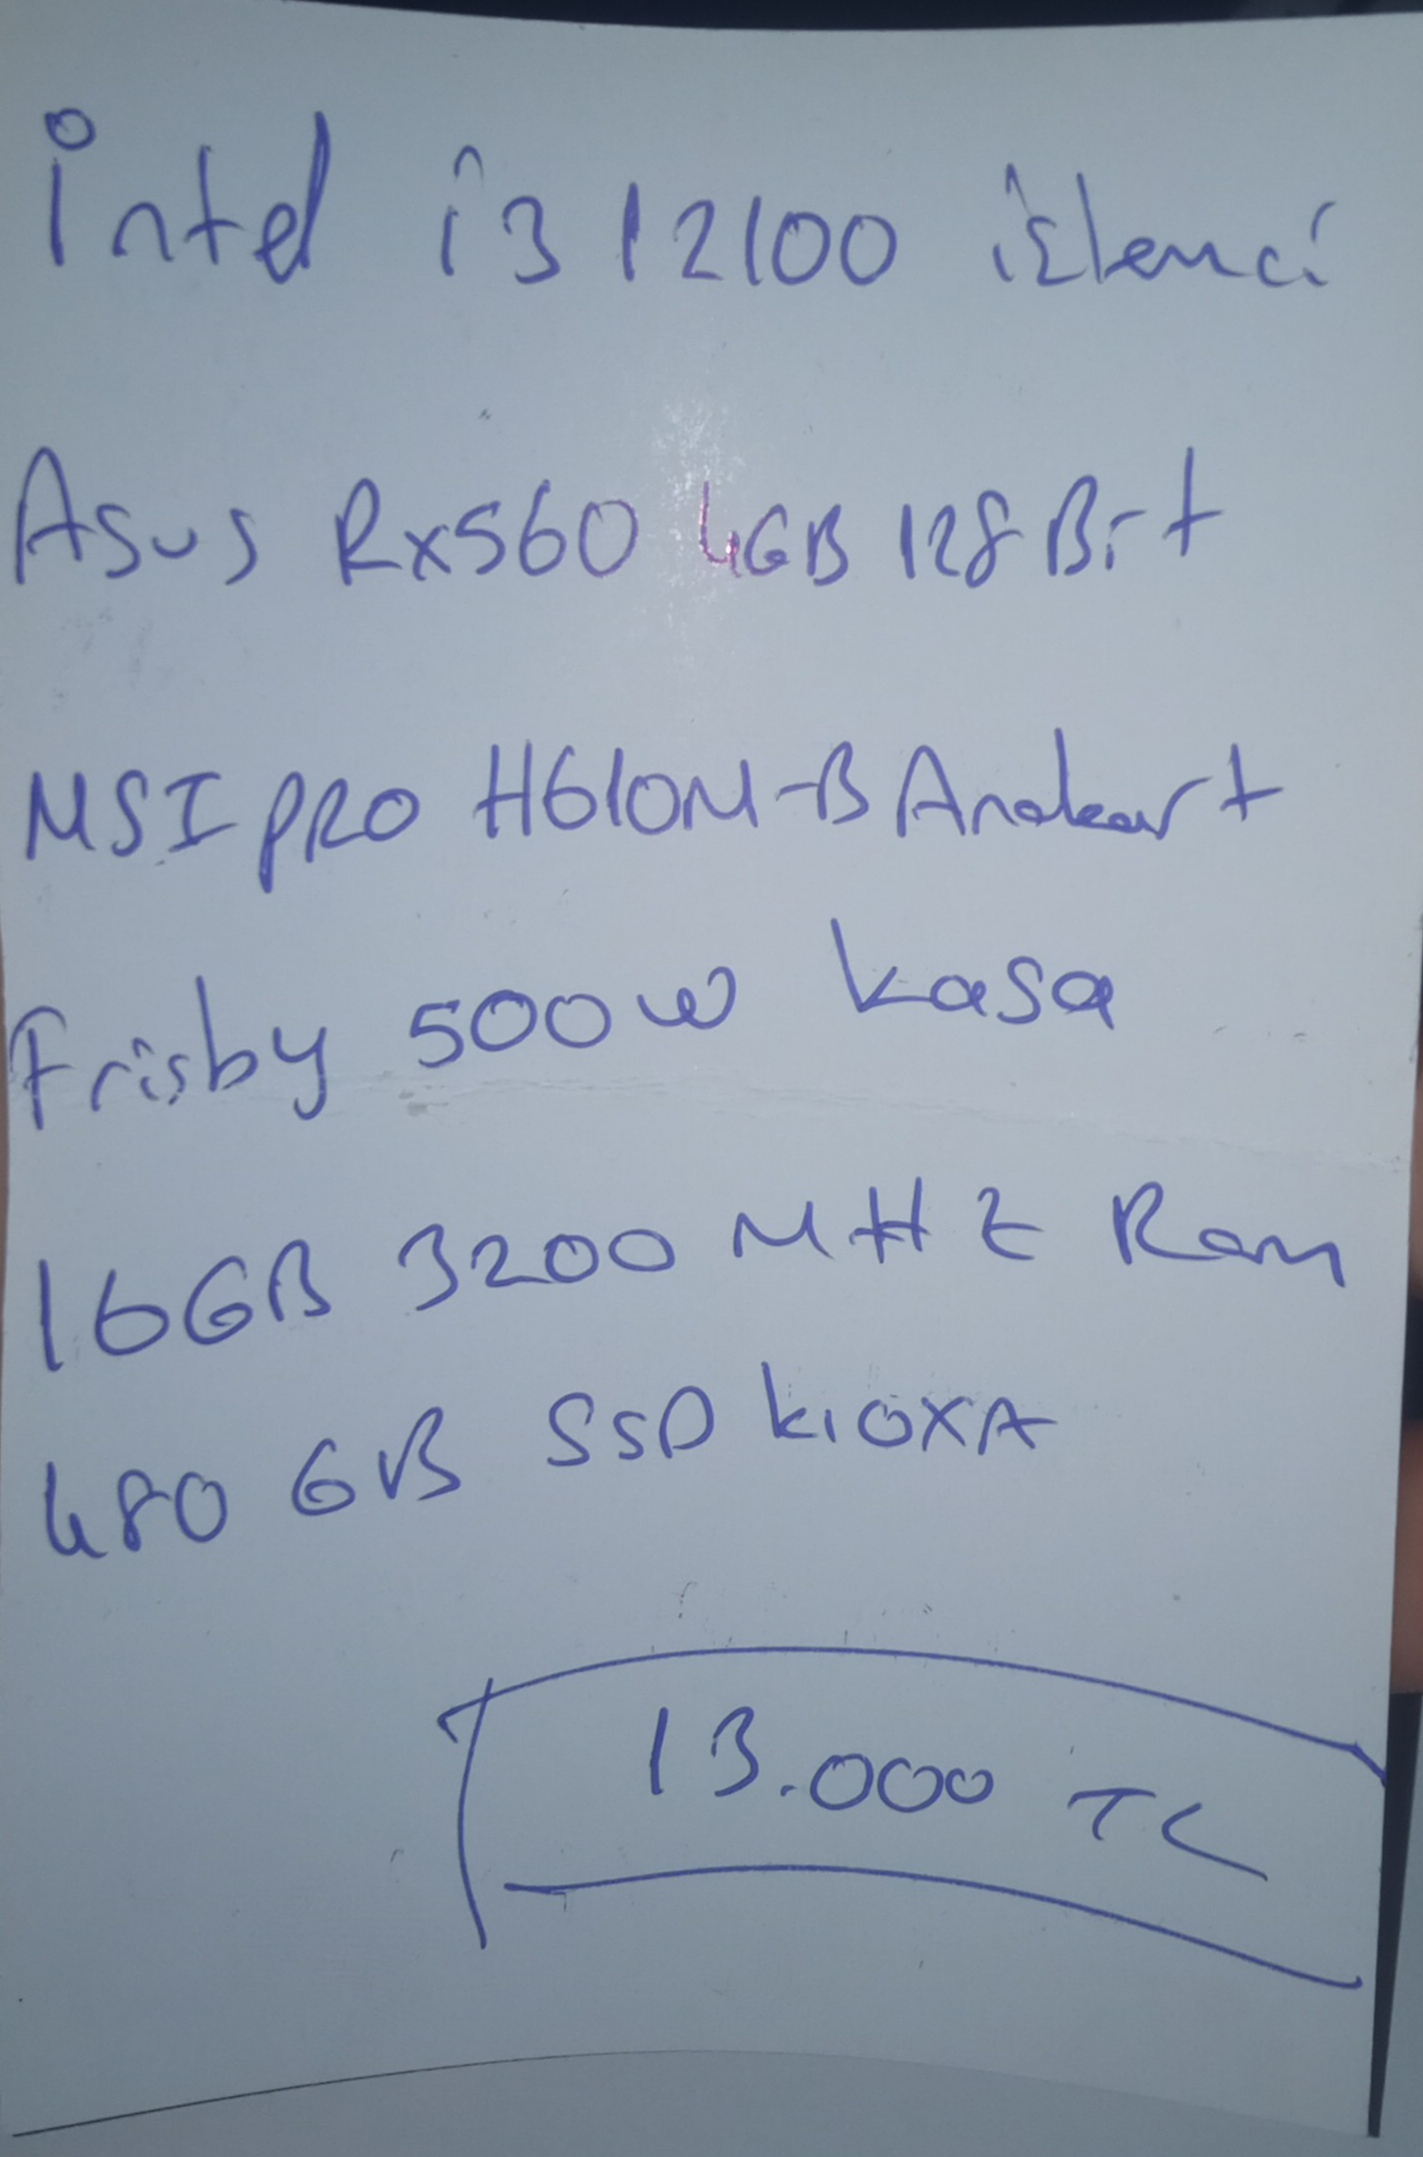 intel i3 12100 işlemci
Asus Rx560 4GB 128 Bit
MSI PRO H610M-B Anakart
Frisby 500w kasa
16GB 3200 MHZ Ram
480 GB SSD KIOXA
13.000 TL